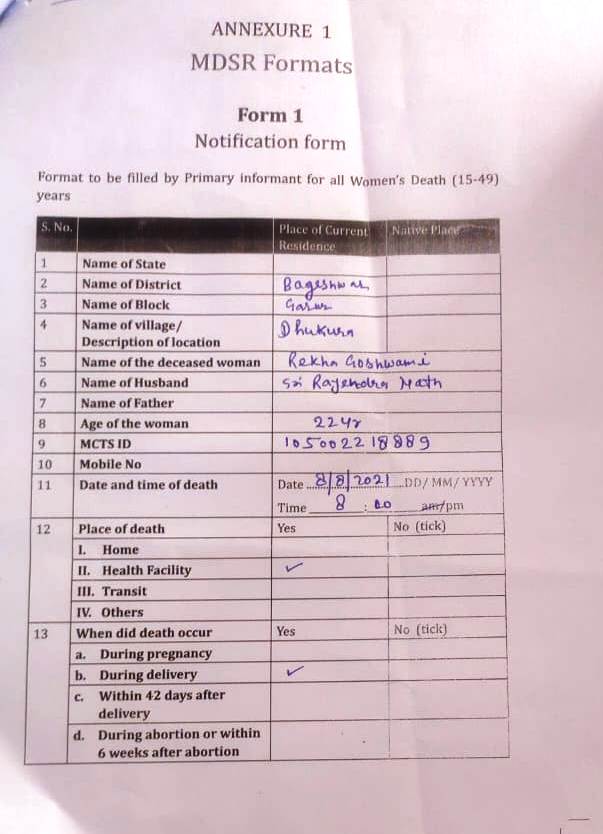 ANNEXURE 1
MDSR Formats
Form 1
Notification form
Format to be filled by Primary informant for all Women's Death (15-49)
years
S. No. Place of Current Residence Native Place
1 Name of State
2 Name of District Bageshwar
3 Name of Block Garur
4 Name of village/ Description of location Dhukura
5 Name of the deceased woman Rekha Goshwami
6 Name of Husband Sri Rajendra Nath
7 Name of Father
8 Age of the woman 22 yr
9 MCTS ID 105002218889
10 Mobile No
11 Date and time of death Date 8/8/2021 DD/ MM/ YYYY
Time 8 : am/pm
12 Place of death Yes No (tick)
I. Home
II. Health Facility ✓
III. Transit
IV. Others
13 When did death occur Yes No (tick)
a. During pregnancy
b. During delivery ✓
c. Within 42 days after
delivery
d. During abortion or within
6 weeks after abortion